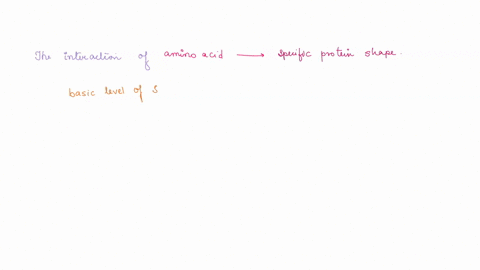 The interaction of amino acid → specific protein shape.
basic level of s